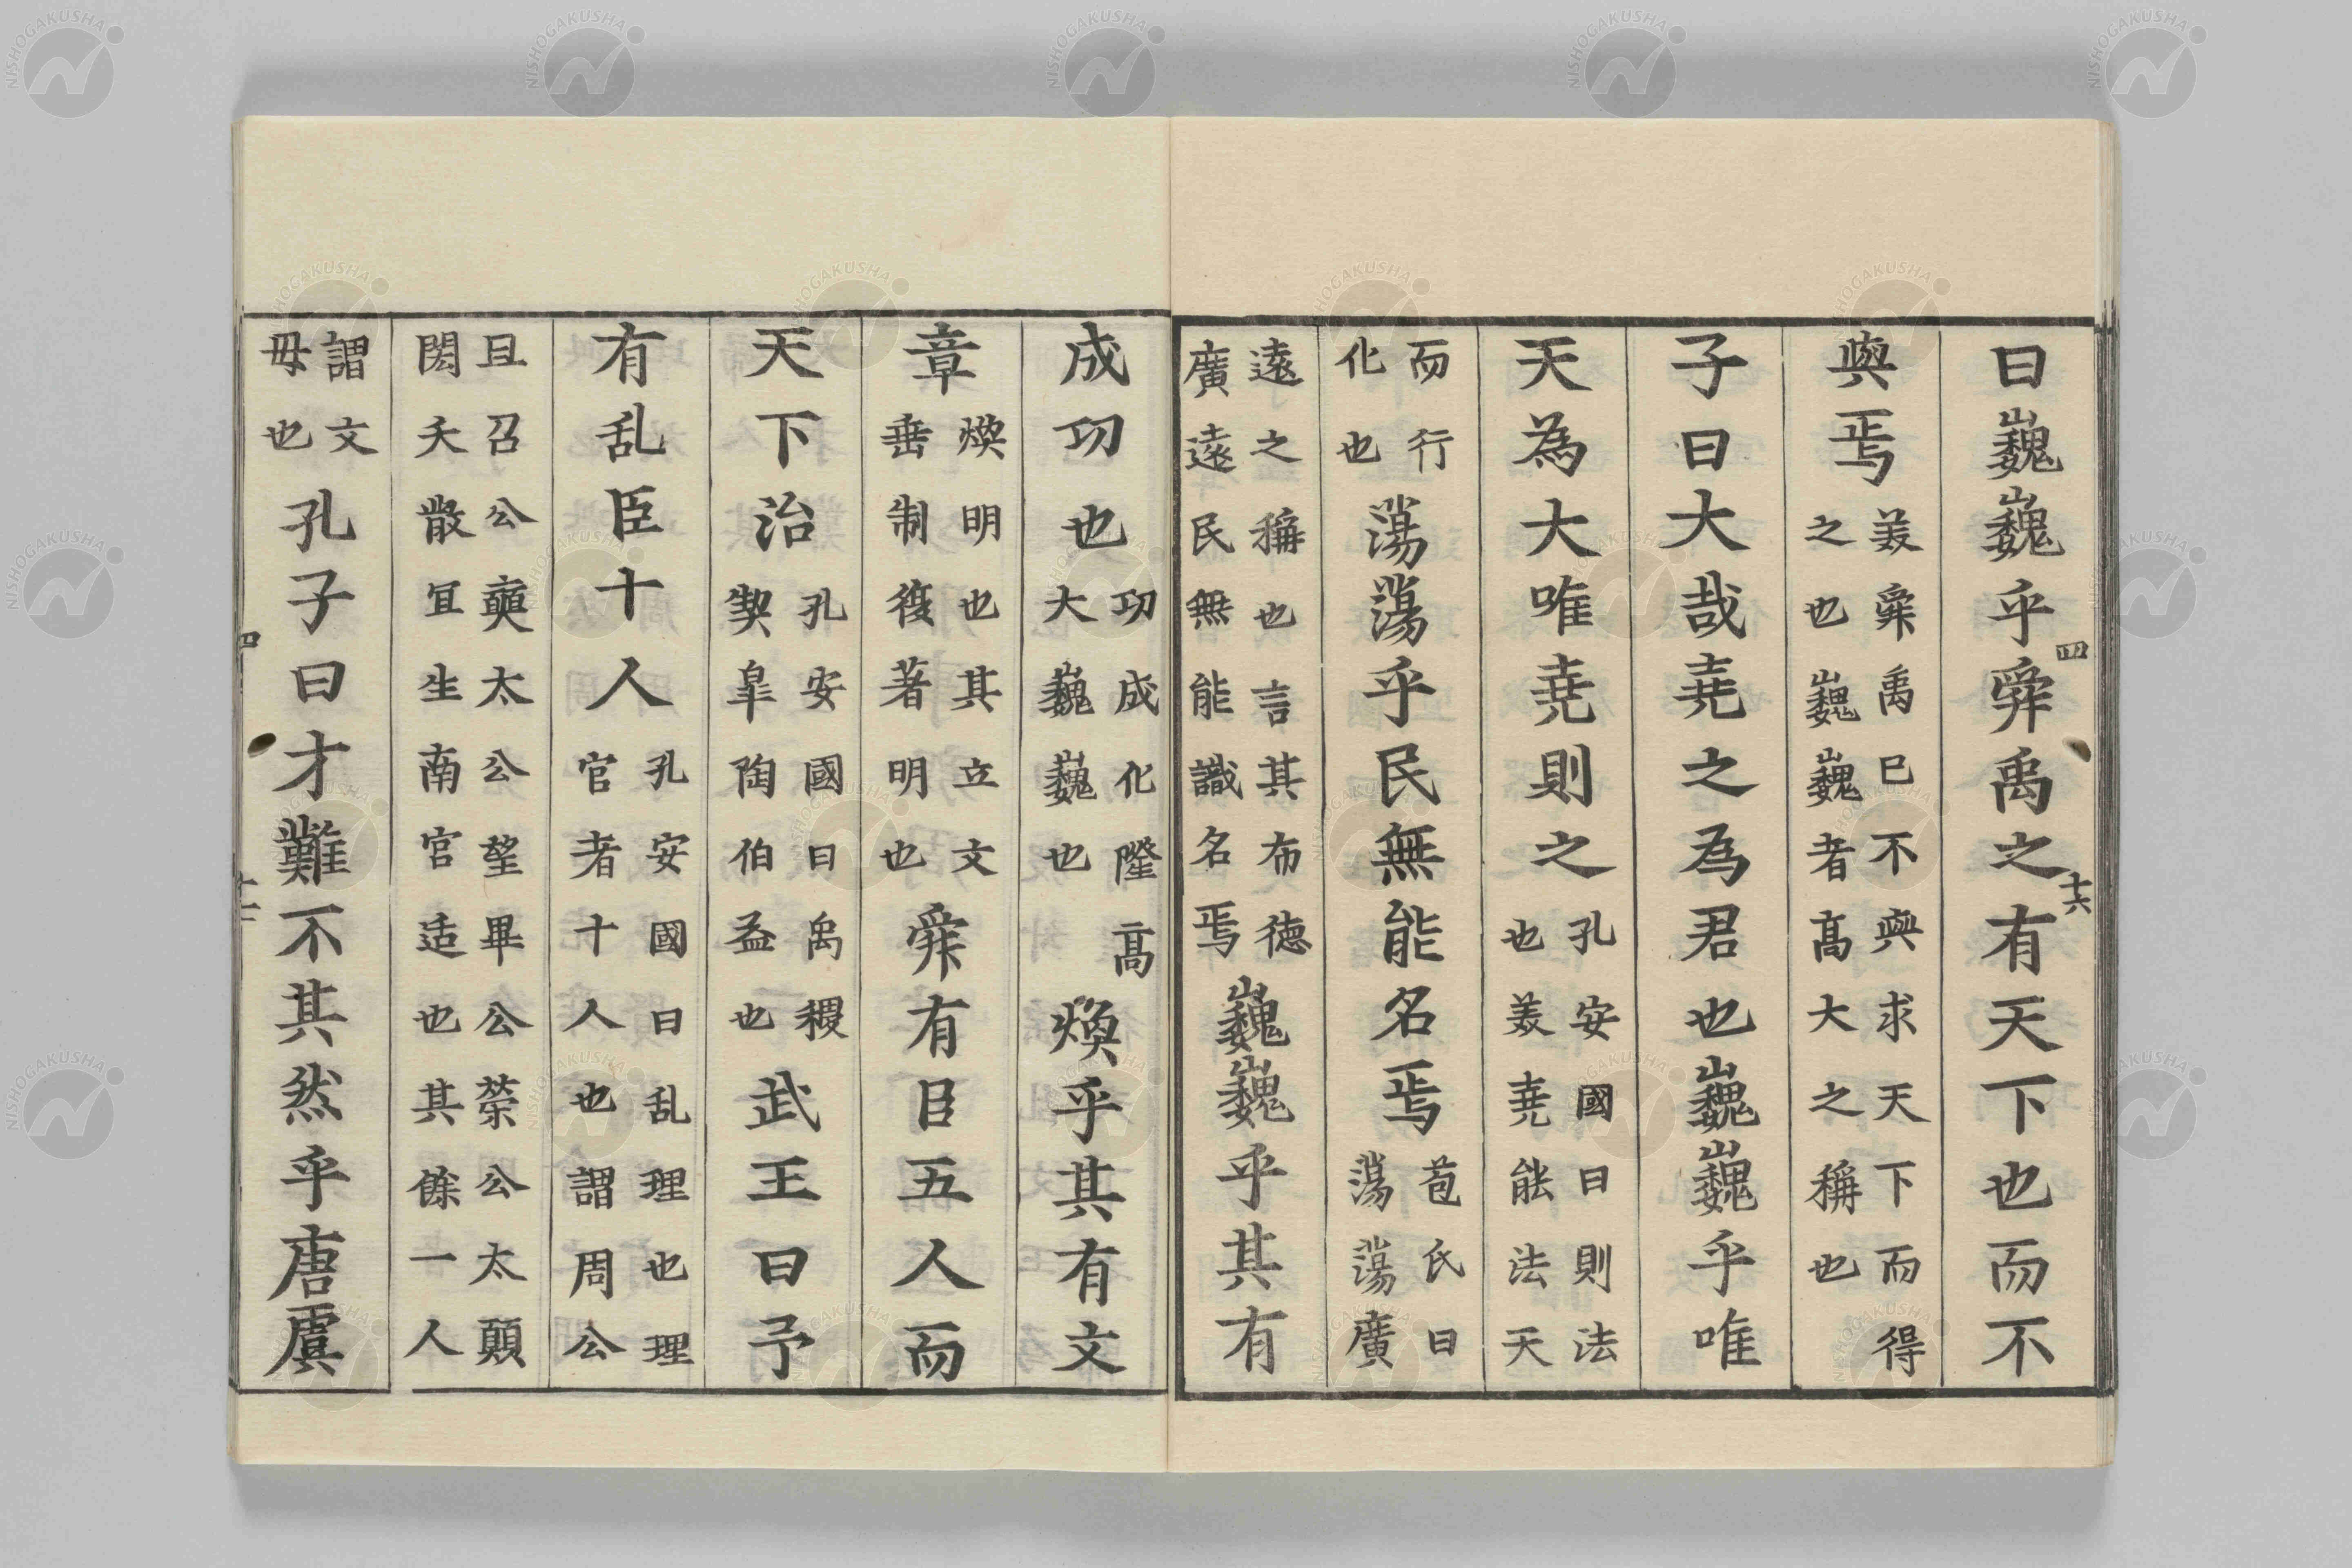 曰巍巍乎舜禹之有天下也而不
與焉美舜禹已不與求天下而得之也巍巍者高大之稱也
子曰大哉堯之為君也巍巍乎唯
天為大唯堯則之孔安國曰則法也美堯能法天
而行化也蕩蕩乎民無能名焉苞氏曰蕩蕩廣
遠之稱也言其布德廣遠民無能識名焉巍巍乎其有
成功也功成化隆高大巍巍也煥乎其有文
章煥明也其立文垂制復著明也舜有臣五人而
天下治孔安國曰禹稷契皐陶伯益也武王曰予
有乱臣十人孔安國曰乱理也理官者十人也謂周公
旦召公奭太公望畢公榮公太顛閎夭散宜生南宮适也其餘一人
謂文母也孔子曰才難不其然乎唐虞
四
十六
四
NISHOGAKUSHA